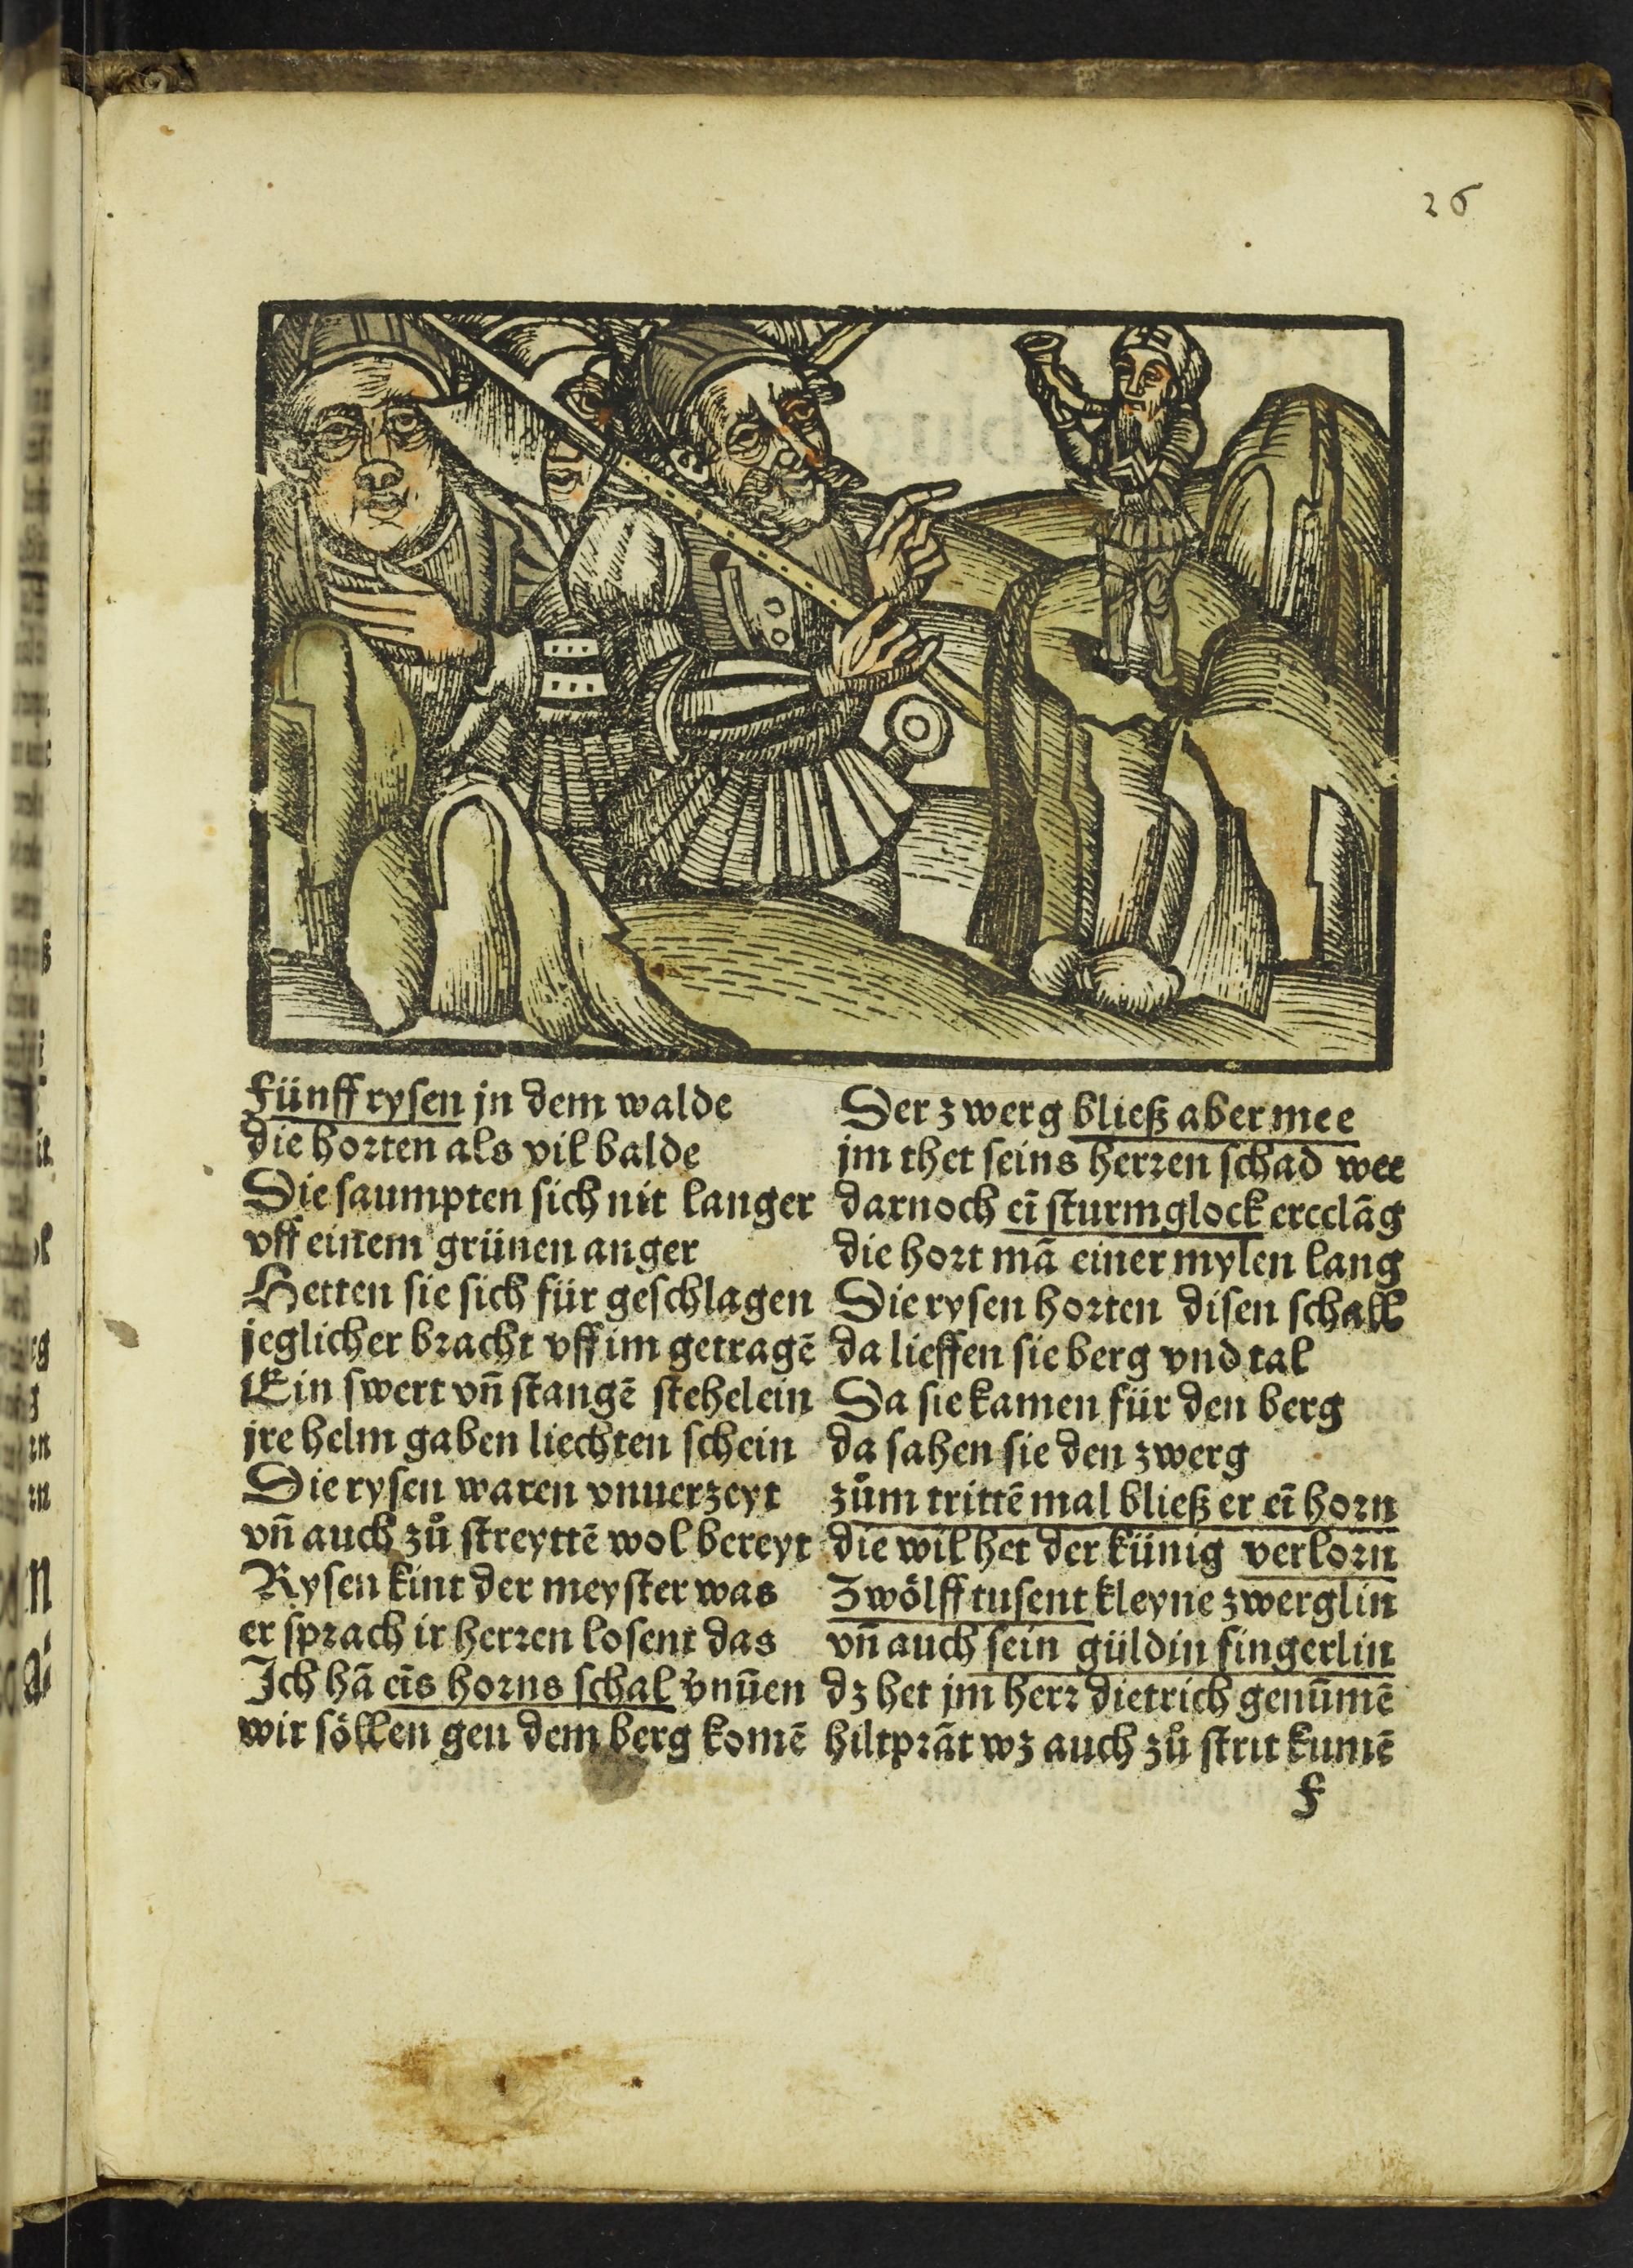 26
Fünff rysen jn dem walde
die horten als vil balde
Die saumpten sich nit langer
vff einem grünen anger
Hetten sie sich für geschlagen
jeglicher bracht vff im getragē
Ein swert vn̄ stangē stehelein
jre helm gaben liechten schein
Die rysen waren vnuerzeyt
vn̄ auch zů streyttē wol bereyt
Rysen kint der meyster was
er sprach ir herren losent das
Ich hā eīs horns schal
wir söllen gen dem berg komē
Der zwerg bließ aber mee
jm thet seins herren schad wee
darnoch eī sturmglock ercclāg
die hort mā einer mylen lang
Die rysen horten disen schall
da lieffen sie berg vnd tal
Da sie kamen für den berg
da sahen sie den zwerg
zům trittē mal bließ er eī horn
die wil het der künig verlorn
Zwölff tusent kleyne zwerglin
vn̄ auch sein güldin fingerlin
dz het jm herr dietrich genūmē
hiltprāt wz auch zů strit kumē
f